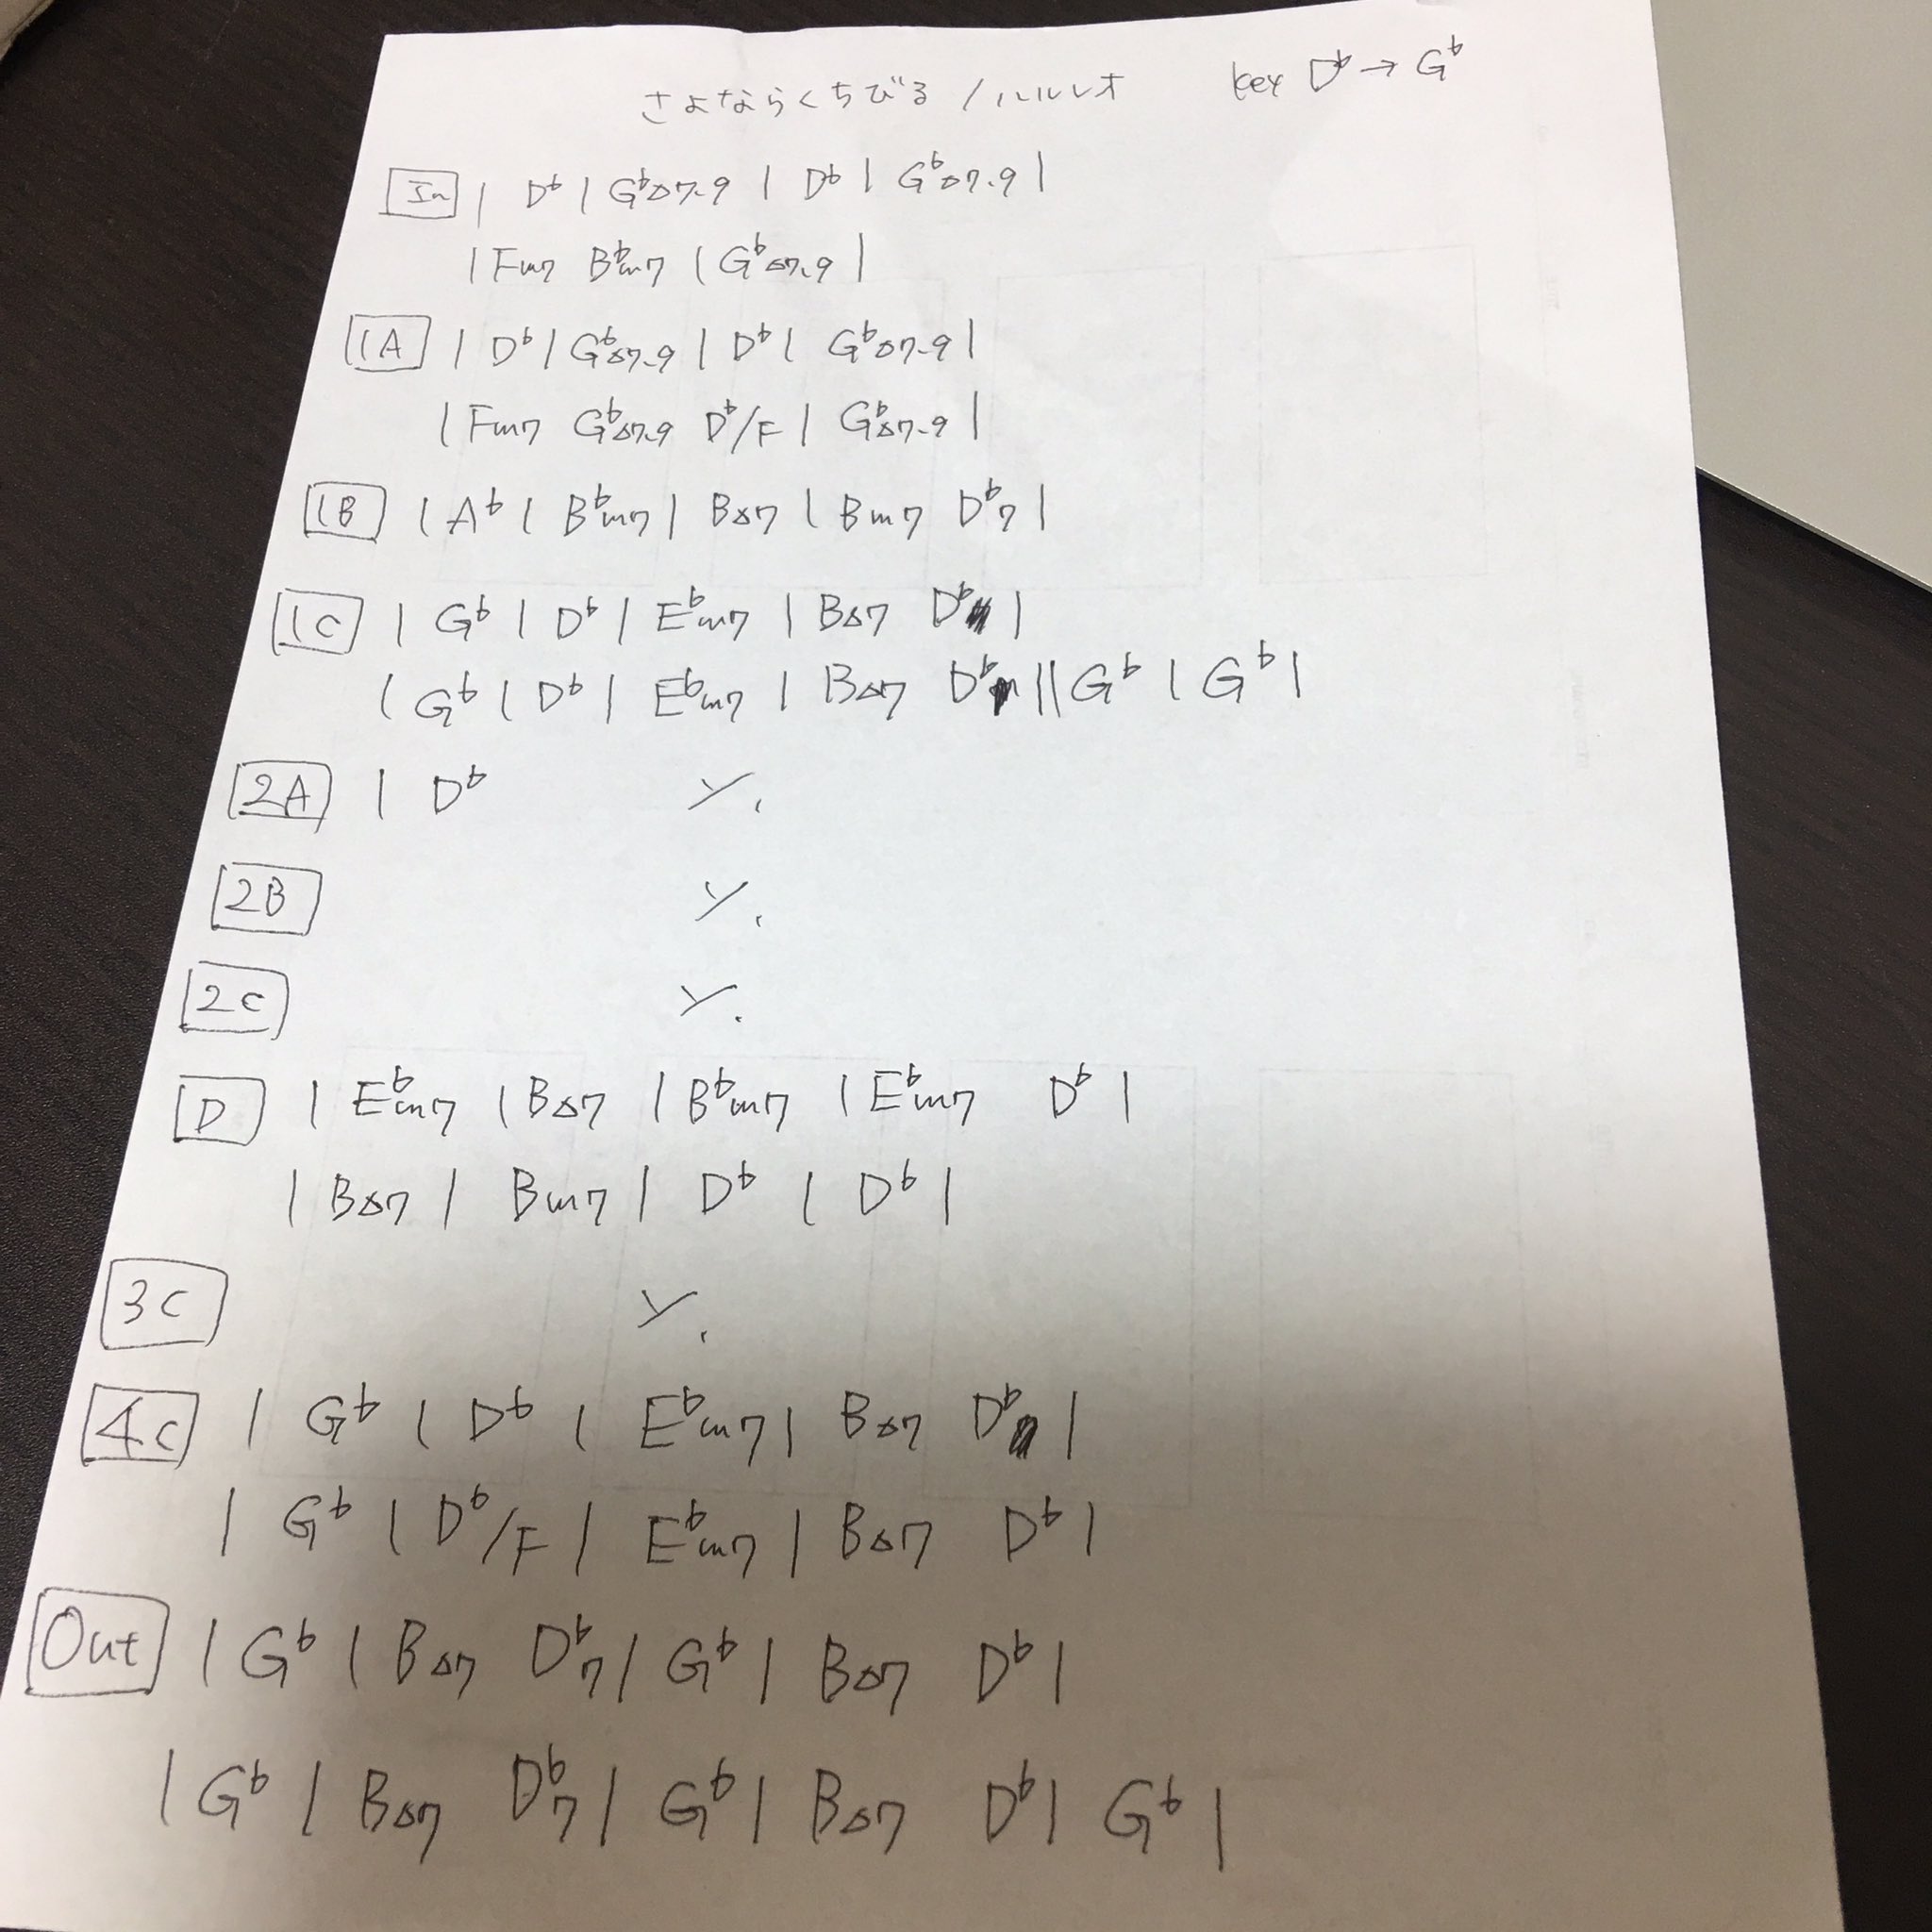 さよならくちびる / ハルレオ key D♭ → G♭
In | D♭ | G♭△7.9 | D♭ | G♭△7.9 |
| Fm7 B♭m7 | G♭△7.9 |
1A | D♭ | G♭△7.9 | D♭ | G♭△7.9 |
| Fm7 G♭△7.9 D♭/F | G♭△7.9 |
1B | A♭ | B♭m7 | B△7 | Bm7 D♭7 |
1C | G♭ | D♭ | E♭m7 | B△7 D♭ |
| G♭ | D♭ | E♭m7 | B△7 D♭ || G♭ | G♭ |
2A | D♭ ٪
2B ٪
2C ٪
D | E♭m7 | B△7 | B♭m7 | E♭m7 D♭ |
| B△7 | Bm7 | D♭ | D♭ |
3C ٪
4C | G♭ | D♭ | E♭m7 | B△7 D♭ |
| G♭ | D♭/F | E♭m7 | B△7 D♭ |
Out | G♭ | B△7 D♭7 | G♭ | B△7 D♭ |
| G♭ | B△7 D♭7 | G♭ | B△7 D♭ | G♭ |